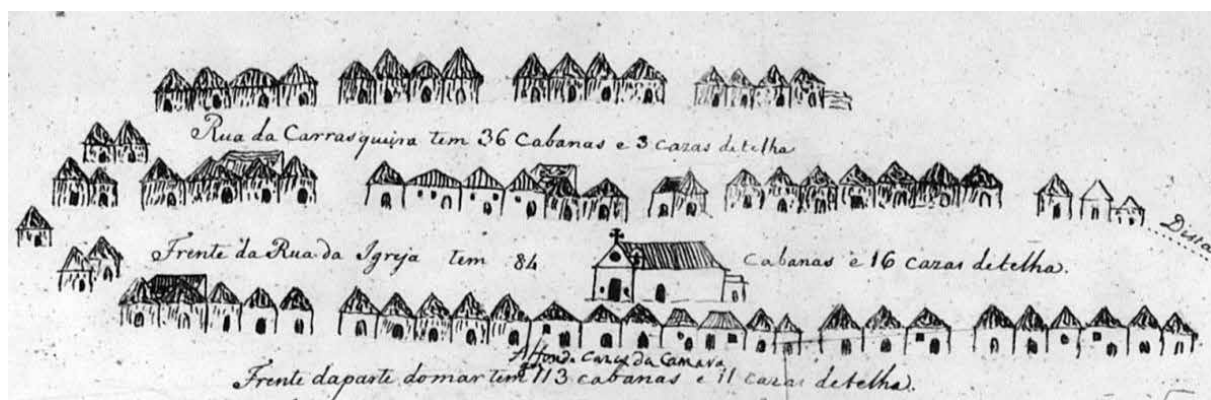 Rua da Carrasqueira tem 36 Cabanas e 3 cazas de telha
Dista
Frente da Rua da Igreja tem 84 cabanas e 16 cazas de telha.
cazas da Camara
Frente da parte do mar tem 113 cabanas e 11 cazas de telha.